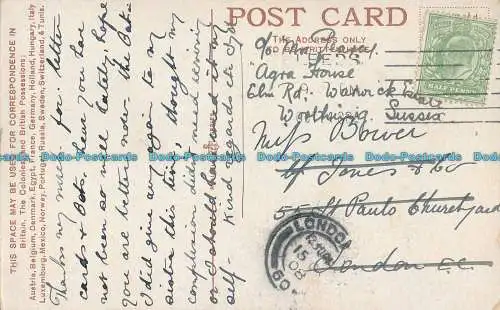 POST CARD
THIS SPACE MAY BE USED FOR CORRESPONDENCE IN
Britain, The Colonies and British Possessions;
Austria, Belgium, Denmark, Egypt, France, Germany, Holland, Hungary, Italy
Luxemburg, Mexico, Norway, Portugal, Russia, Sweden, Switzerland, & Tunis.
THE ADDRESS ONLY
TO BE WRITTEN HERE
LEEDS
Thanks very much for letter
cards & Oaks, hear you have
not been so well lately, hope
you are better now. The Oaks
I did give away again to my
sister this time, thought my
complexion didn't
or I should have
self - Kind regards
Agra House
Elm Rd. Warwick Estate
Worthing Sussex
Miss Bower
Jones & Co
55 St Pauls Churchyard
London E.C.
LONDON
15
09
Dodo-Postcards
Dodo-Postcards
Dodo-Postcards
Dodo-Postcards
Dodo-Postcards
Dodo-Postcards